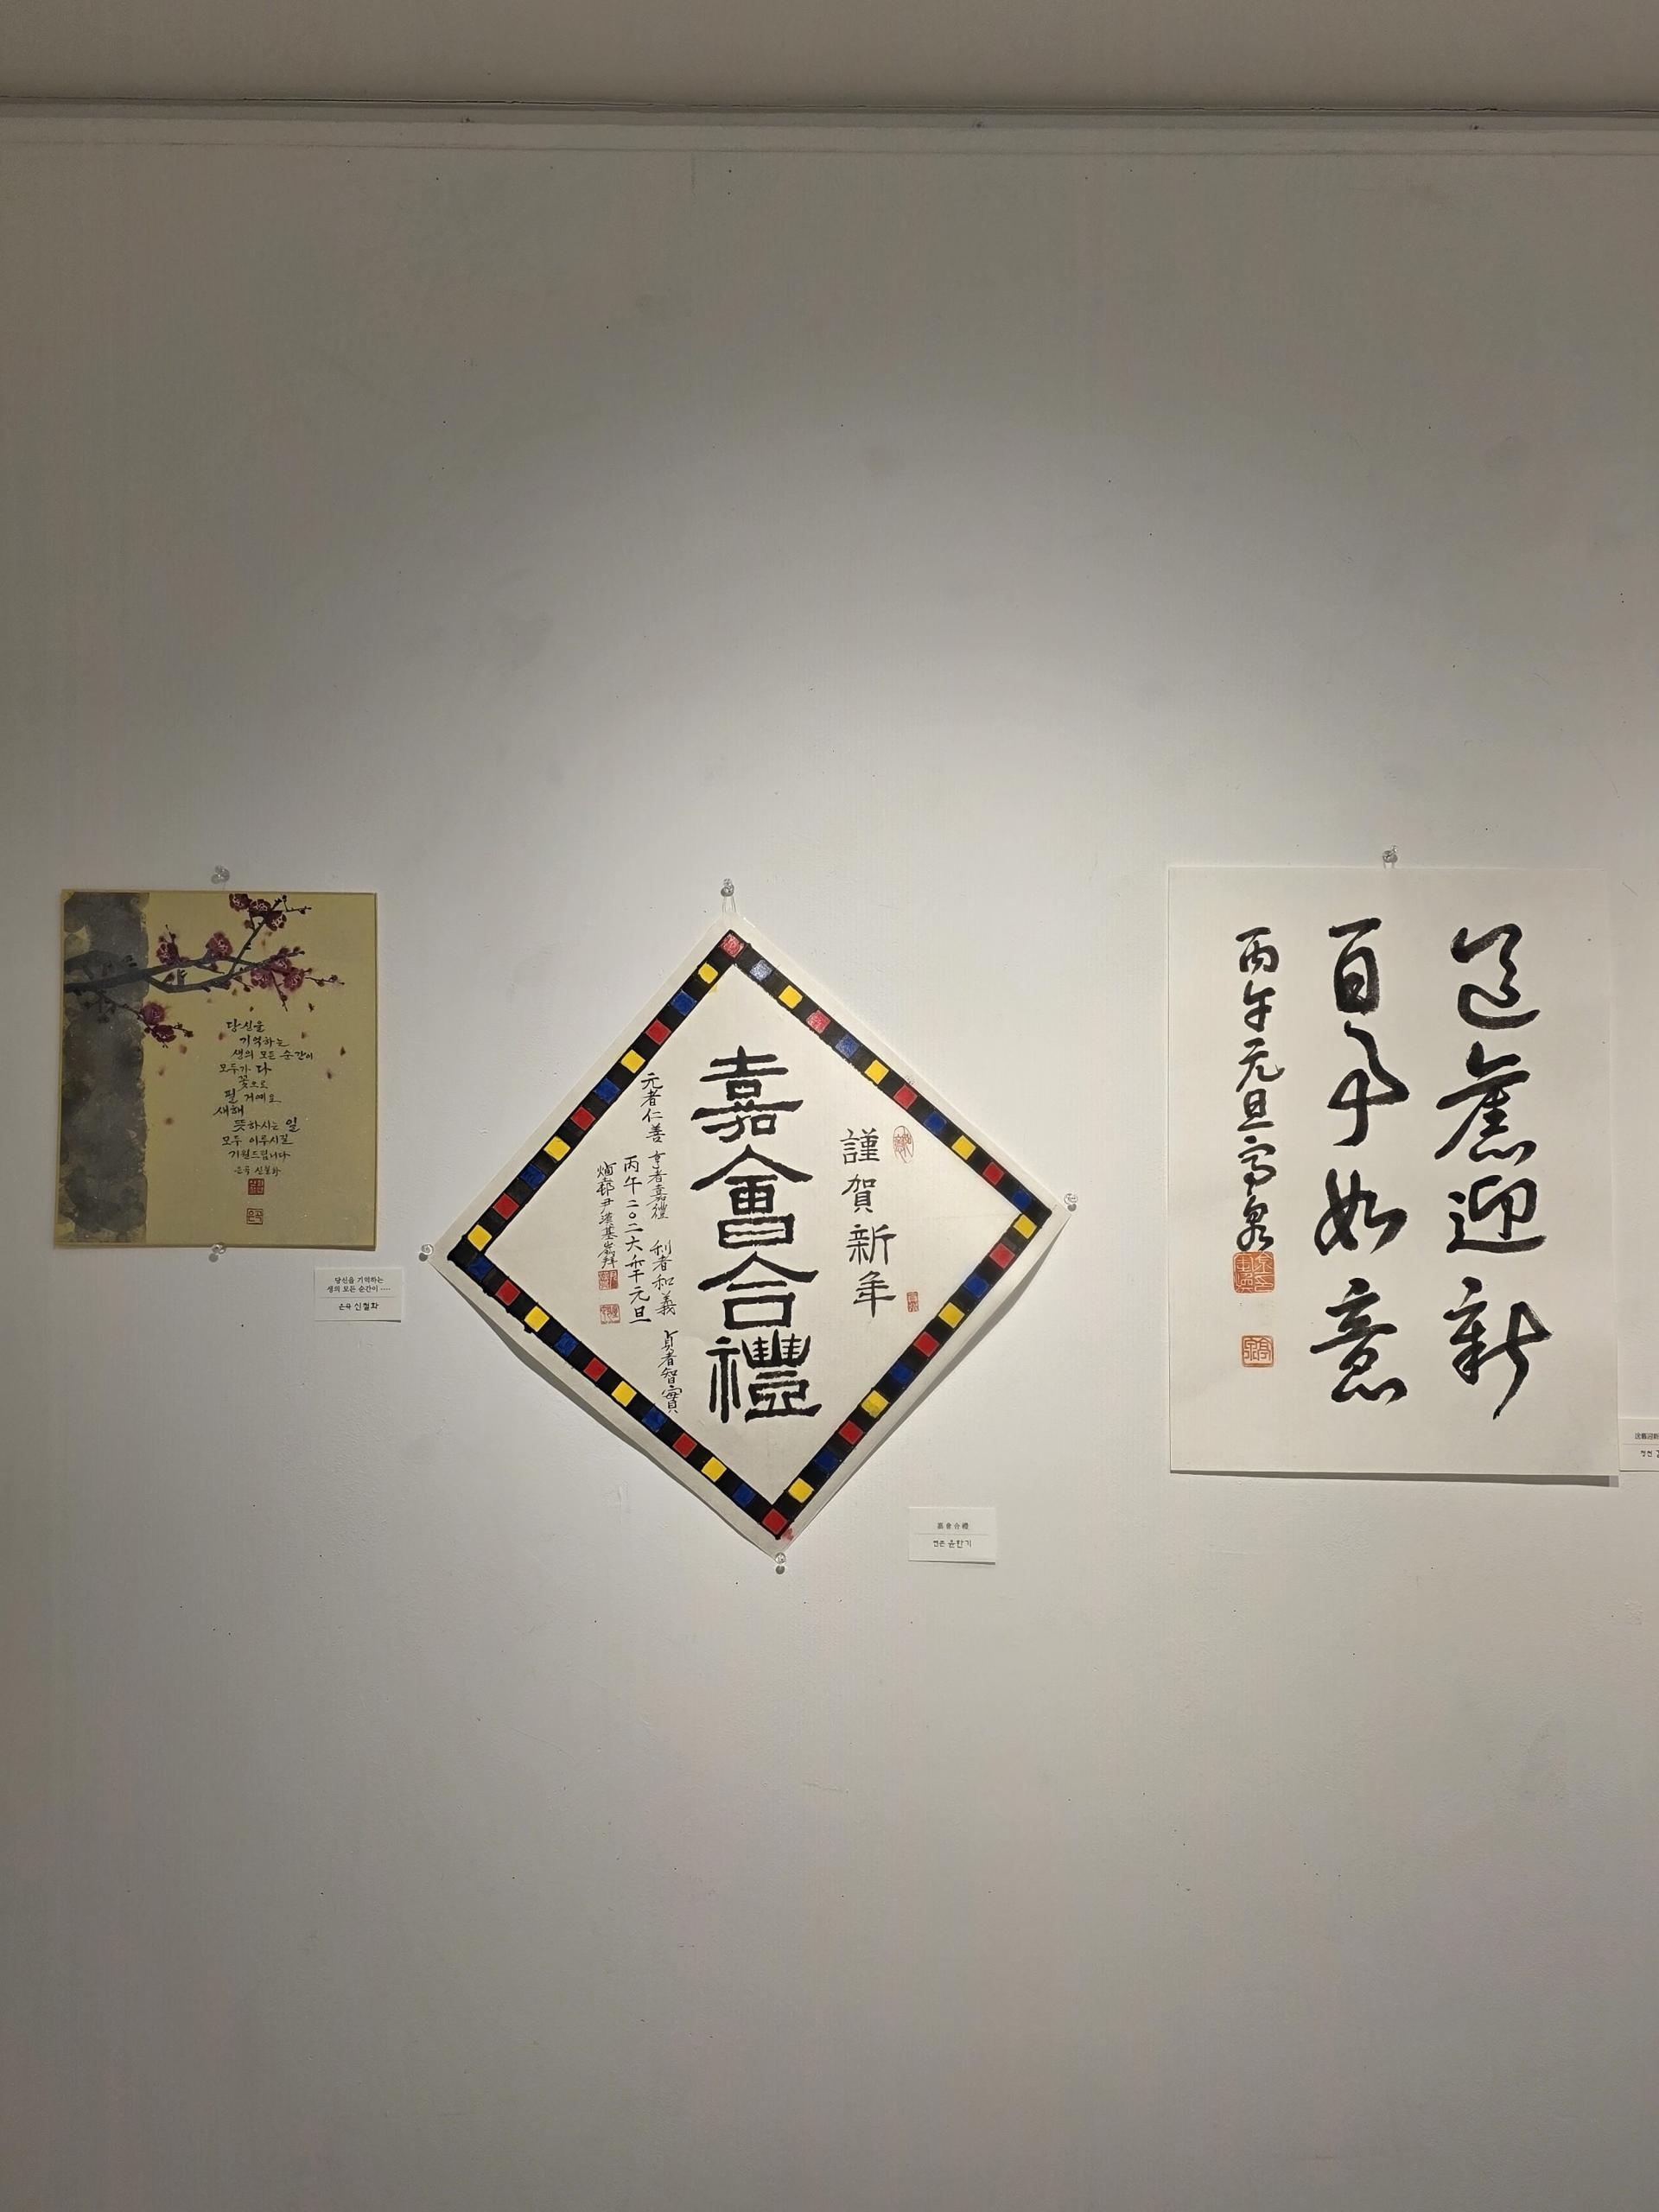 당신을
기억하는
생의 모든 순간이
모두가 다
꽃으로
필 거예요
새해
뜻하시는 일
모두 이루시길
기원드립니다
은곡 신철화
당신을 기억하는
생의 모든 순간이 ....
은곡 신철화
謹賀新年
嘉會合禮
元者仁善 亨者嘉禮 利者和義 貞者智實
丙午二〇二六年元旦
尹漢基
嘉會合禮
윤한기
送舊迎新
百事如意
丙午元旦 高泉
送舊迎新